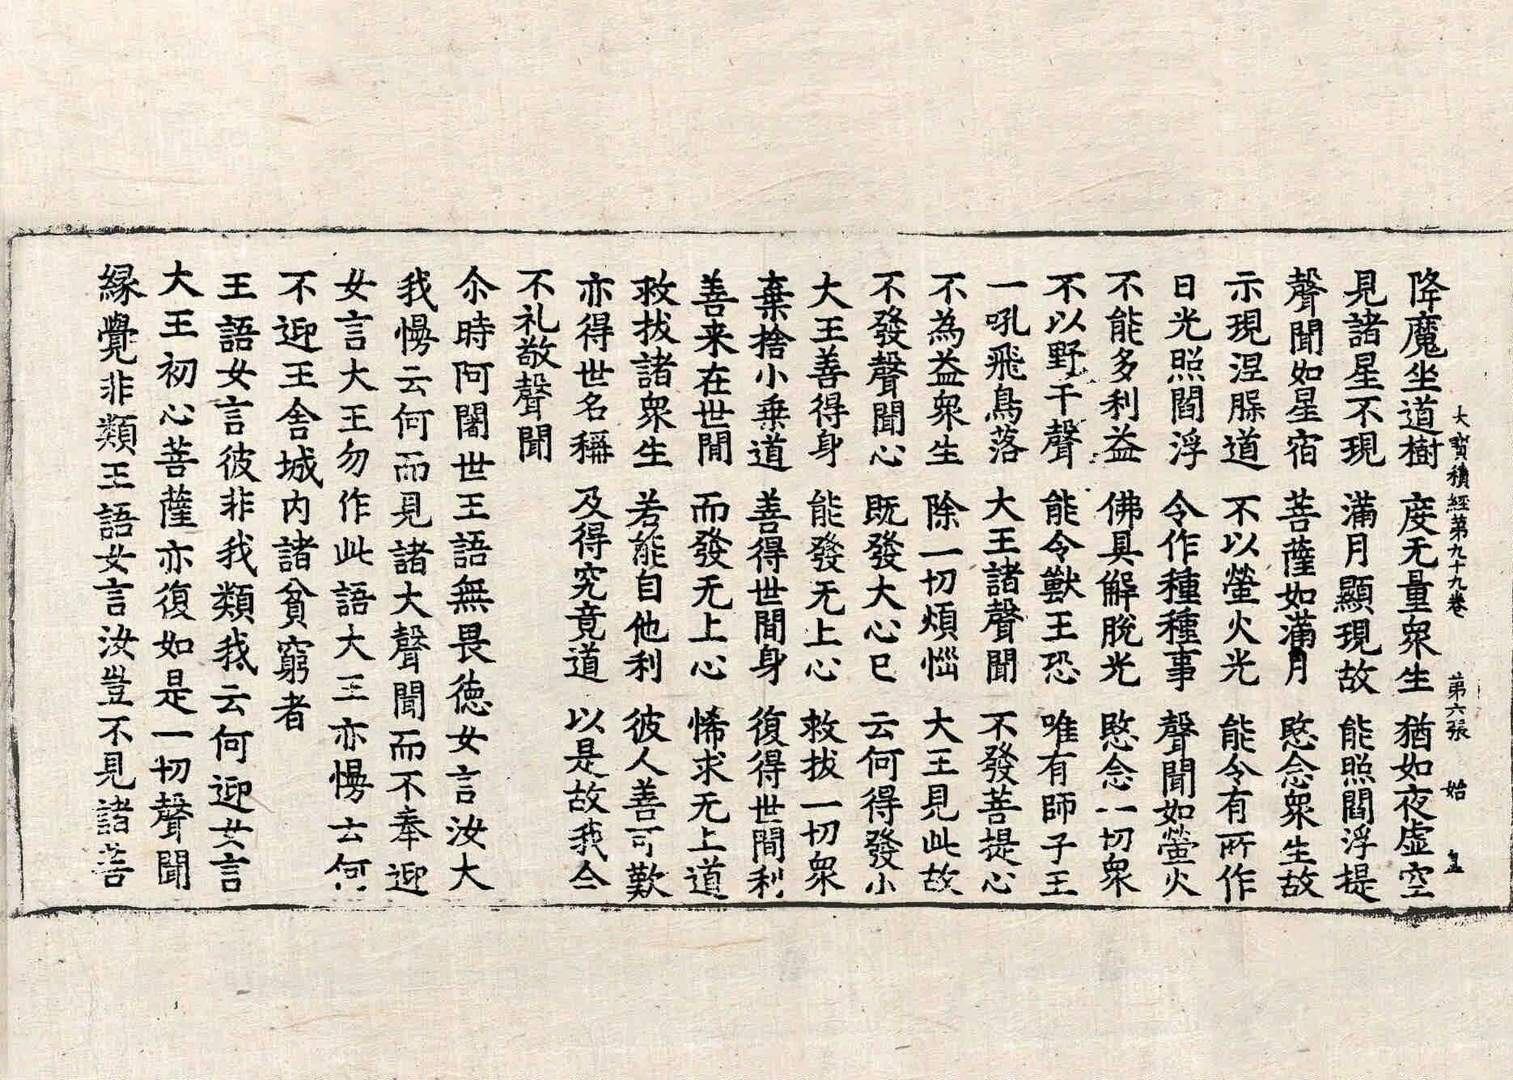 大寶積經第九十九卷　第六張　始　皇
降魔坐道樹　度无量衆生　猶如夜虛空
見諸星不現　滿月顯現故　能照閻浮提
聲聞如星宿　菩薩如滿月　愍念衆生故
示現涅槃道　不以螢火光　能令有所作
日光照閻浮　令作種種事　聲聞如螢火
不能多利益　佛具解脫光　愍念一切衆
不以野干聲　能令獸王恐　唯有師子王
一吼飛鳥落　大王諸聲聞　不發菩提心
不為益衆生　除一切煩惱　大王見此故
不發聲聞心　既發大心已　云何得發小
大王善得身　能發无上心　救拔一切衆
棄捨小乗道　善得世間身　復得世間利
善来在世間　而發无上心　悕求无上道
救拔諸衆生　若能自他利　彼人善可歎
亦得世名稱　及得究竟道　以是故我今
不礼敬聲聞
尒時阿闍世王語無畏徳女言汝大
我慢云何而見諸大聲聞而不奉迎
女言大王勿作此語大王亦慢云何
不迎王舍城内諸貧窮者
王語女言彼非我類我云何迎女言
大王初心菩薩亦復如是一切聲聞
縁覺非類王語女言汝豈不見諸菩